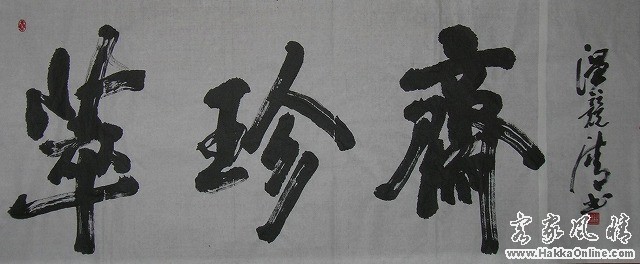 萃珍齋
温競清书
客家风情
www.HakkaOnline.com